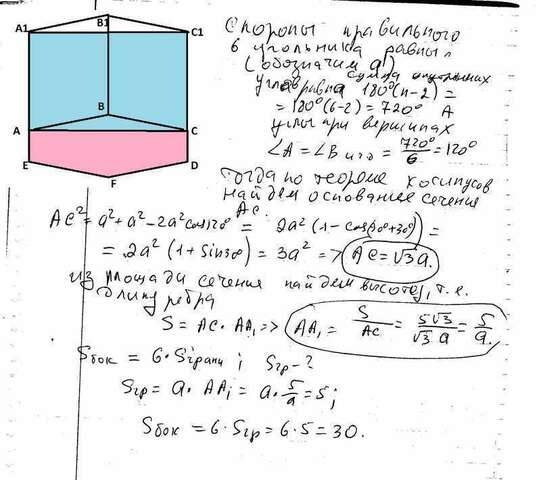 A1
B1
C1
B
A
C
E
D
F
Стороны правильного
6 угольника равны,
(обозначим а)
сумма внутренних
углов равна 180°(n-2) =
= 180°(6-2) = 720° А
углы при вершинах
∠A = ∠B и т.д = 720°/6 = 120°
Тогда по теореме косинусов
найдем основание сечения
AC.
AC² = a² + a² - 2a² cos120° = 2a² (1 - cos(90°+30°)) =
= 2a² (1 + sin30°) = 3a² => AC = √3 a.
из площади сечения найдем высоту, т.е.
длину ребра
S = AC · AA₁ => AA₁ = S/AC = 5√3/√3 a = 5/a.
Sбок = 6 · Sграни ; Sгр - ?
Sгр = a · AA₁ = a · 5/a = 5;
Sбок = 6 · Sгр = 6 · 5 = 30.